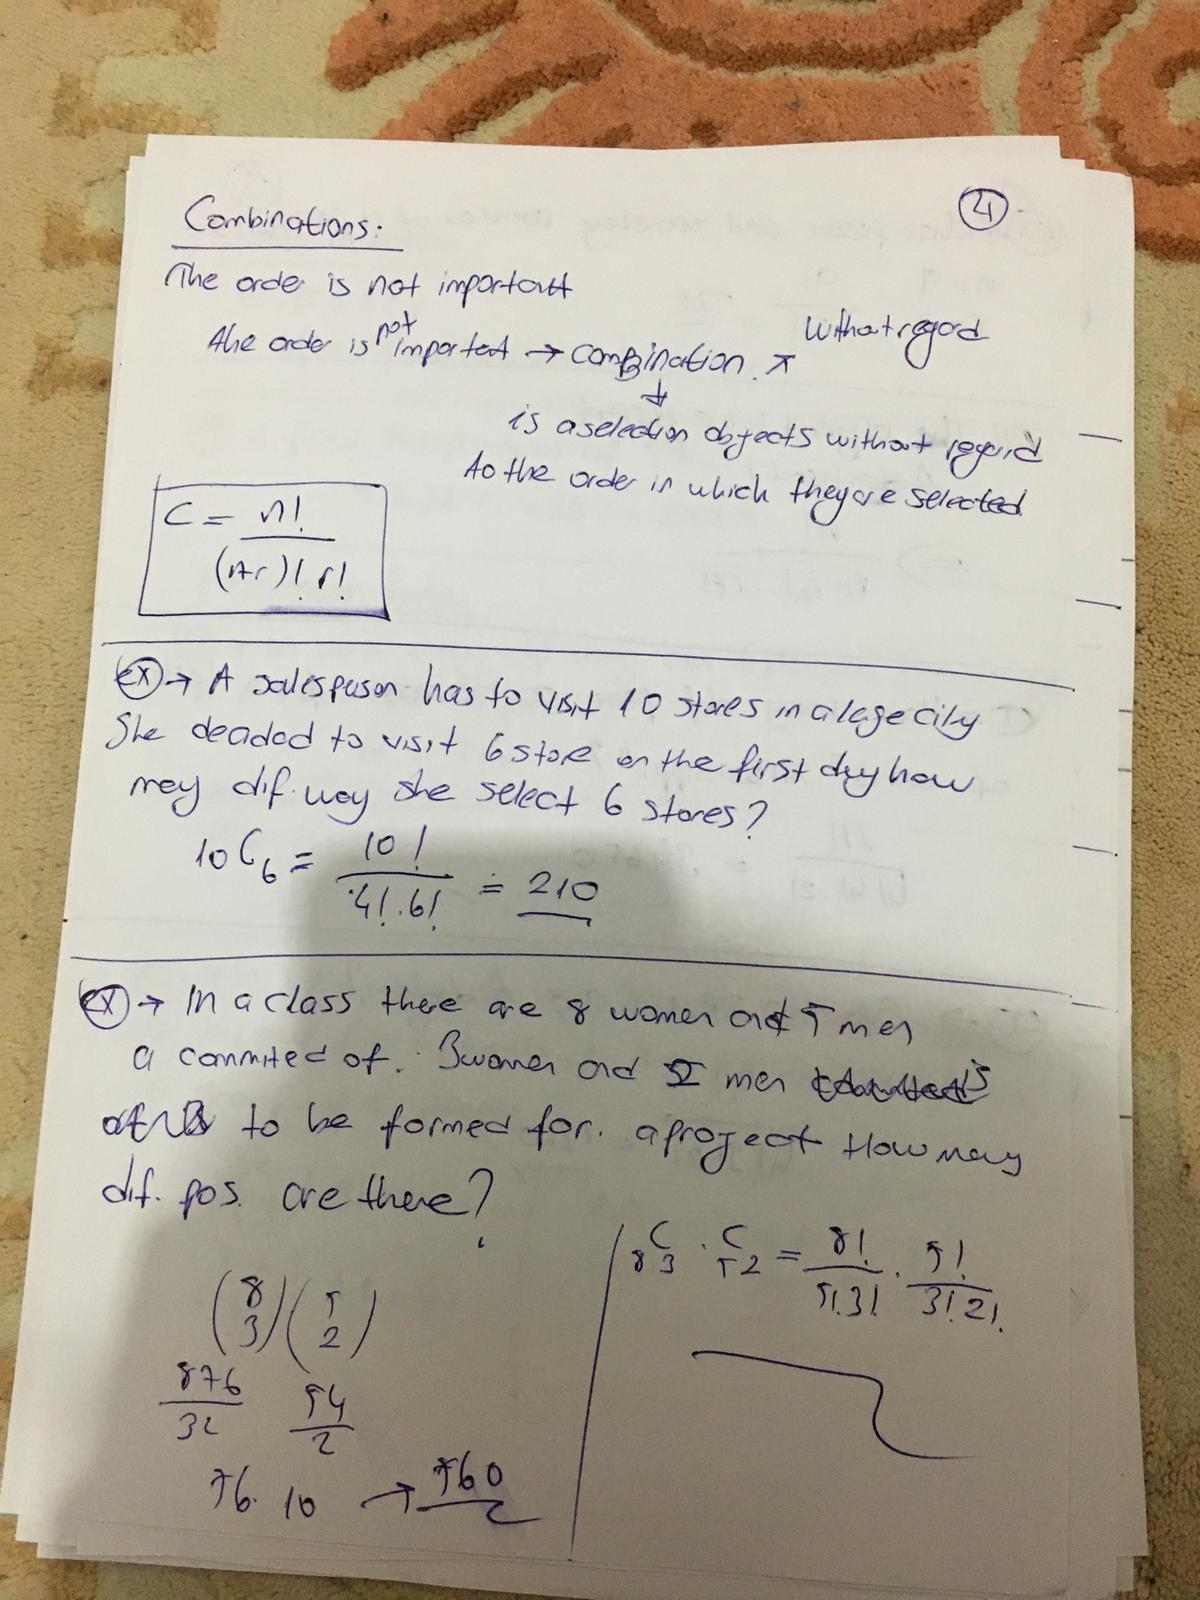 21
Combinations:
The order is not important
the order is not important → combination
without regard
is a selection objects without regard
to the order in which they are selected
C = n! / (n-r)! r!
ex → A salesperson has to visit 10 stores in a large city
She decided to visit 6 store on the first day how
may dif. way she select 6 stores?
10C6 = 10! / 4!.6! = 210
ex → In a class there are 8 women and 5 men
a commited of. 3women and 2 men is
to be formed for. a project How may
dif. pos. are there?
8C3 . 5C2 = 8! / 5!.3! . 5! / 3!.2!
(8 3) (5 2)
876 / 32 54 / 2
56. 10 → 560